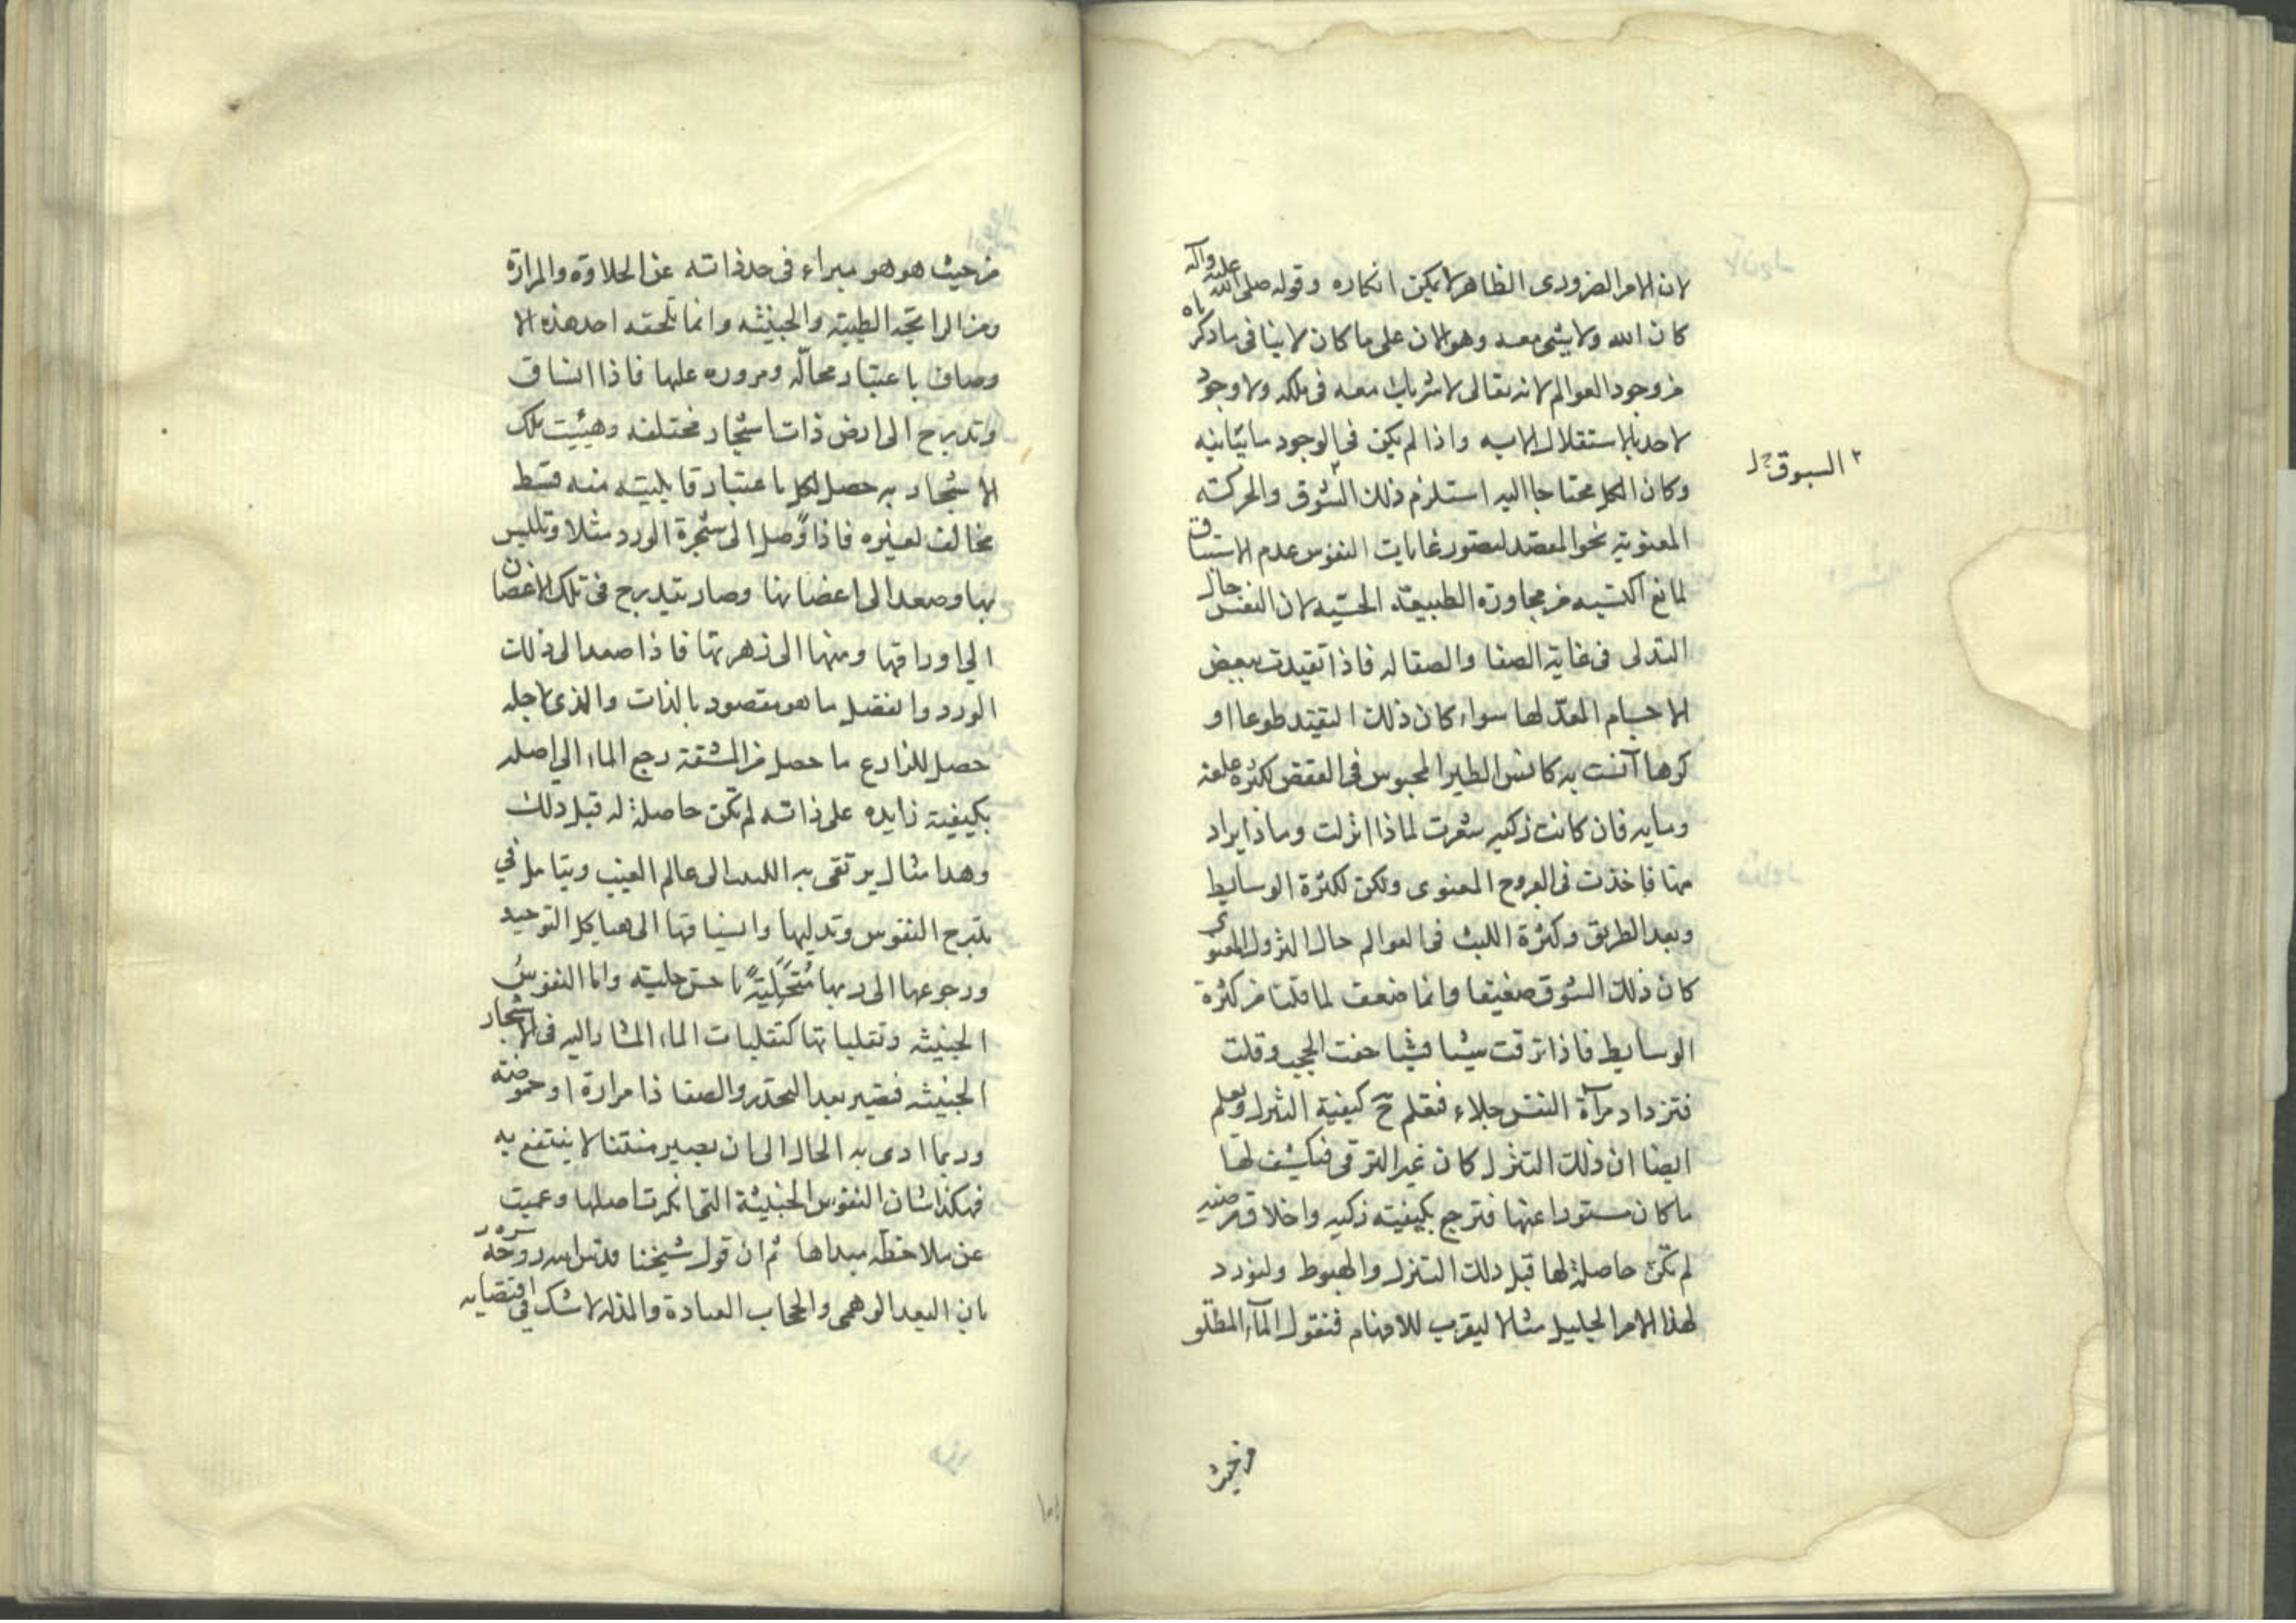 لان الامر الضرورى الظاهر لا يمكن انكاره وقوله صلى الله عليه وآله
كان الله ولا شئ معه وهو الان على ما كان لا ينافى ما ذكرناه
من وجود العوالم لانه تعالى لا شريك معه فى ملكه ولا وجود
لاحد بالاستقلال الا به واذا لم يكن فى الوجود ما يباينه
وكان الكل محتاجا اليه استلزم ذلك الشوق والحركته
٢ السبوق
المعنويته نحو المقصد ليتصور غايات النفوس عدم الاستباق
لمانع اكتسبه من مجاورة الطبيعة الحسيه لان النفس حال
التدلى فى غاية الصفا والصقاله فاذا تقيدت ببعض
الاجسام المعدّ لها سواء كان ذلك التقيد طوعا او
كرها آنست به كانس الطير المحبوس فى القفص لكثرة علفه
ومايه فان كانت زكيه شعرت لماذا انزلت وماذا يراد
منها فاخذت فى العروج المعنوى ولكن لكثرة الوسايط
وبعد الطريق وكثرة اللبث فى العوالم حال النزول المعنوى
كان ذلك الشوق ضعيفا وانما ضعف لما قلنا من كثرة
الوسايط فاذا ترقت شيئا فشيئا خفت الحجب وقلت
فتزداد مرآة النفس جلاء فتعلم ح كيفية التنزل وتعلم
ايضا ان ذلك التنزل كان غير الترقى فيكشف لها
ما كان مستورا عنها فترجع بكيفيته زكيه واخلاق مرضيه
لم تكن حاصلة لها قبل ذلك التنزل والهبوط ولنورد
لهذا الامر الجليل مثالا ليقرب للافهام فنقول المآء المطلو
من حيث
من حيث هو هو مبراء فى حد ذاته عن الحلاوة والمرارة
ومن الرايحة الطيبته والخبيثه وانما تلحقه احد هذه الا
وصاف باعتبار محالّه ومروره عليها فاذا انساق
وتدرج الى ارض ذات اشجار مختلفه وهيئت تلك
الاشجار به حصل لكل باعتبار قابليته منه قسط
مخالف لغيره فاذا وصل الى شجرة الورد مثلا وتلبس
بها وصعد الى اغضانها وصار يتدرج فى تلك الاغصان
الى اوراقها ومنها الى زهرتها فاذا صعد الى ذلك
الورد وانفصل ما هو مقصود بالذات والذى لاجله
حصل للزارع ما حصل من المشقة رجع الماء الى اصله
بكيفيته زايده على ذاته لم تكن حاصلة له قبل ذلك
وهذا مثال يرتقى به اللبيب الى عالم الغيب ويتامل فى
تدرج النفوس وتدليها وانسياقها الى هياكل التوحيد
ورجوعها الى ربها مُتَحَلّيَةً باحسن حليته واما النفوس
الخبيثه وتقلباتها كتقلبات الماء المشار اليه فى الاشجار
الخبيثه فيصير بعد التحدر والصفا ذا مرارة او حموضته
وربما ادى به الحال الى ان يصير منتنا لا ينتفع به
فهكذا شان النفوس الخبيثة التى انكرت اصلها وعميت
عن ملاحظة مبداها ثم ان قول شيخنا قدس الله روحه
بان البعد الوهمى والحجاب العبادة والمذله لا شك فى اقتضايه